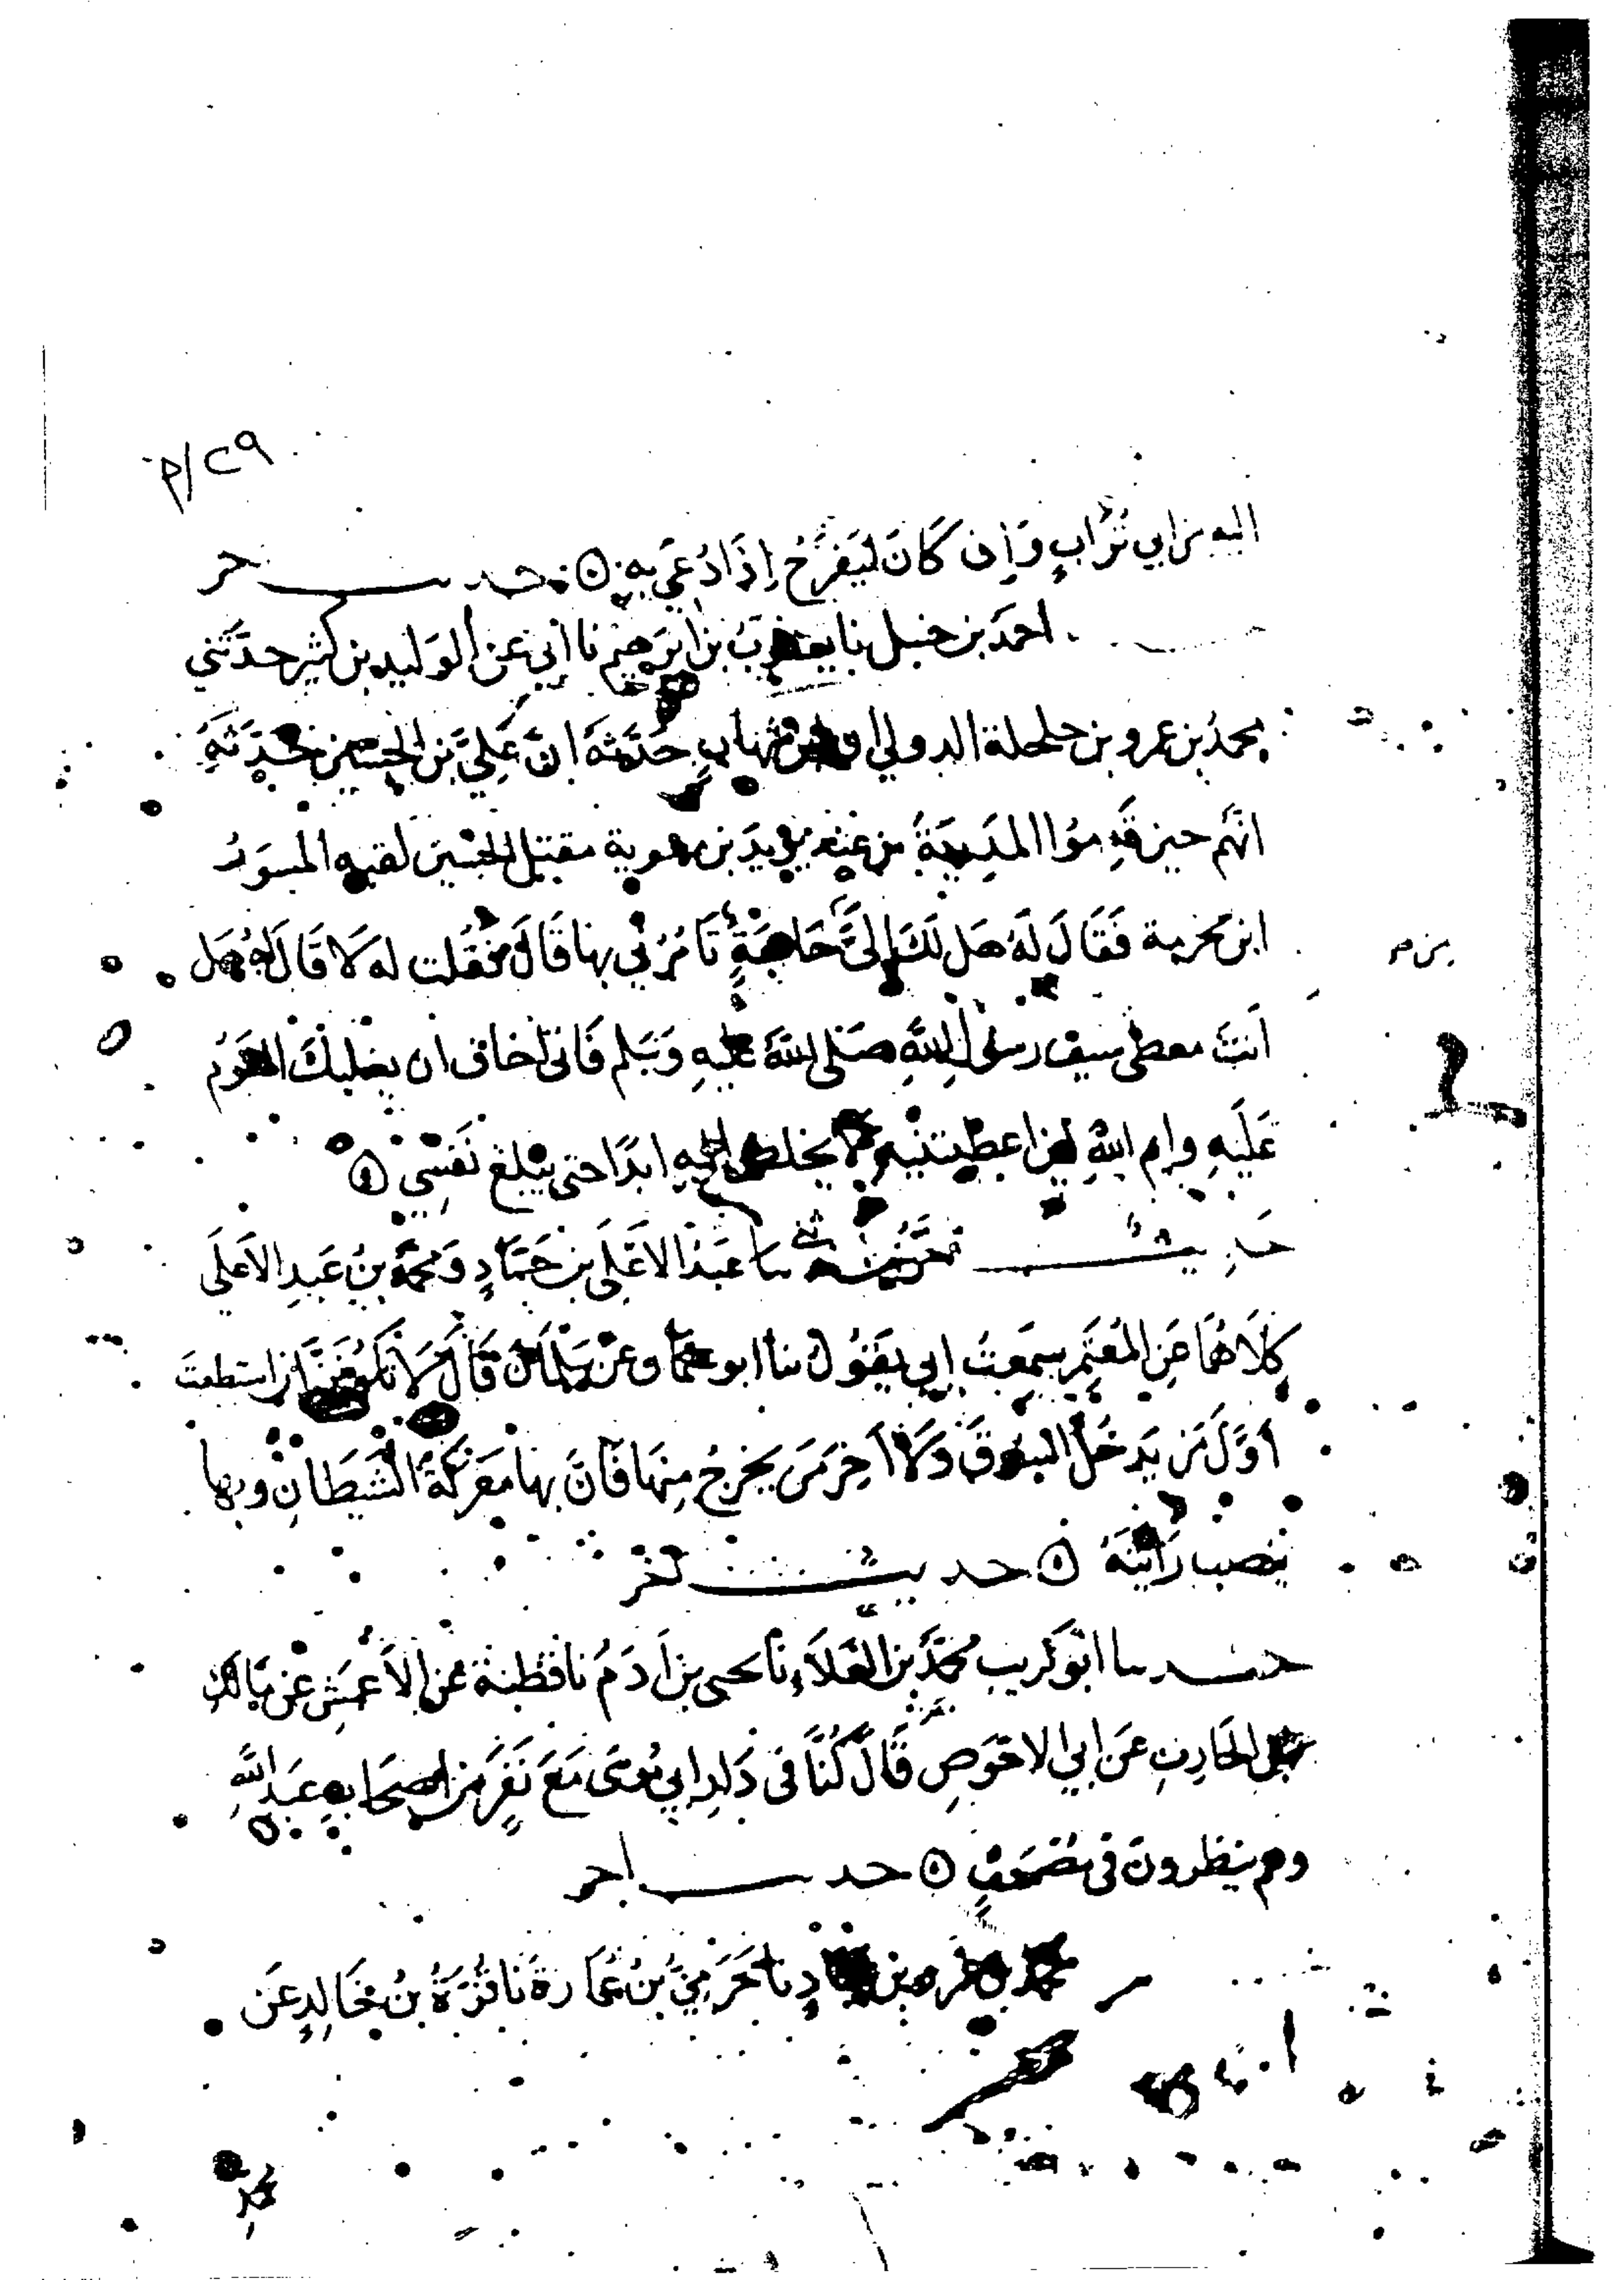 ٢٩/م
اليه من ابي تُرَابٍ وَإن كَانَ ليَفرَحُ إذَا دُعيَ بِهِ ۞ حديث آخر
احمَد بن حنبل نا يعقوبَ بن ابرَهيم نا أبي عَن الوَليد بن كثير حدَثني
محمدُ بن عمرو بن حلحلة الدولي ان ابن شهابٍ حَدَثهُ انَّ عَليَّ بن الحسَين حَدَثهُ
انّهُم حينَ قَدِمُوا المَدينَةَ من عند يزيدَ بن معوية مقتل الحسَين لقيه المِسوَرُ
ابن مخرمة فَقَالَ لَهُ هَل لَكَ إلىَّ حَاجَةٍ تَأمُرُني بهَا قَالَ فقُلت له لَا قَالَ لهُ هَل
بن م
اَنتَ معطي سيف رسول اللَّهِ صَلى اللَّه عليهِ وَسَلم فَاني أخاف ان يغلبكَ القَومُ
عَلَيهِ وايم اللَّهِ لئن اعطيتنيه لا يخلص اليه ابدًا حتى يبلغ نَفسِي ۞
حَديث آخر نا عَبدُ الاَعلَى بن حَمَّادٍ وَمحمَّد بنُ عَبدِ الاَعلَى
كلَاهُمَا عَن المُعتَمِر سَمعتُ ابي يَقوُل نا ابو عثمان عن سَلمَان قَالَ لَا تَكُونَنَّ ان استطعتَ
اَوَّلَ مَن يَدخُلُ السُوقَ وَلَا آخِرَ مَن يَخرجُ مِنهَا فَانَ بهَا مَعرَكَةُ الشَيطَانِ وبها
ينصب رَايَتَهُ ۞ حديث آخر
حدثنا ابُو كُريبٍ مُحَمَّد بن العَلَاءِ نا يحيى بن اَدَمَ نا قطبَة عَن الاَعمَشِ عَن مَالكِ
بن الحَارِث عَن ابي الاحَوصِ قَالَ كُنَّا في دَارِ ابي مُوسَى مَعَ نَفَرٍ من اصحَابِ عَبدِ اللَّهِ
وهم ينظرون في مُصحَفٍ ۞ حديث اخر
محمد بن عمرو بن عبادٍ نا حَرَميُّ بنُ عُمَارةَ نا قُرَةُ بنُ خَالِدٍ عَن
محمد